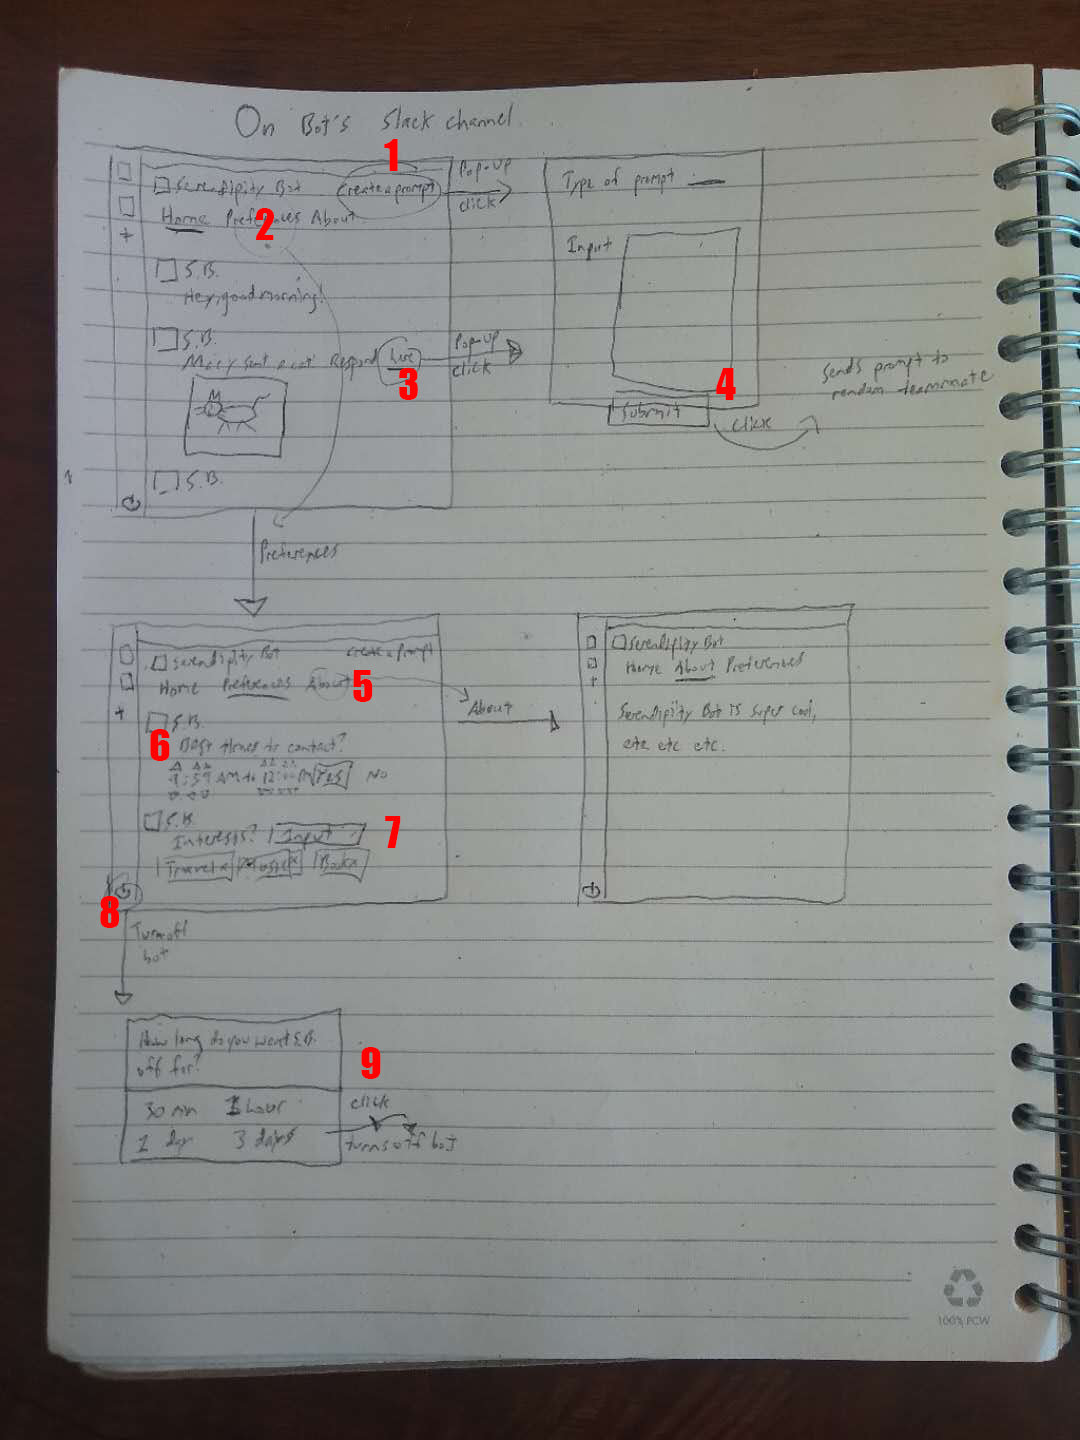 On Bot's Slack channel
1
Serendipity Bot
create a prompt
Pop-up
click
Home Preferences About
2
S.B.
Hey, good morning!
S.B.
sent a cat Respond here
3
Pop-up
click
S.B.
Type of prompt
Input
4
Submit
click
Sends prompt to
random teammate
Preferences
Serendipity Bot
create a prompt
Home Preferences About
5
About
S.B.
6
Best times to contact?
9:59 AM to 12:00
Yes
No
S.B.
Interests? Input
7
Travel x Music x Book x
8
Turn off
bot
Serendipity Bot
Home About Preferences
Serendipity Bot is super cool,
etc etc etc.
How long do you want S.B.
off for?
9
30 min 1 hour
1 day 3 days
click
turns off bot
100% PCW